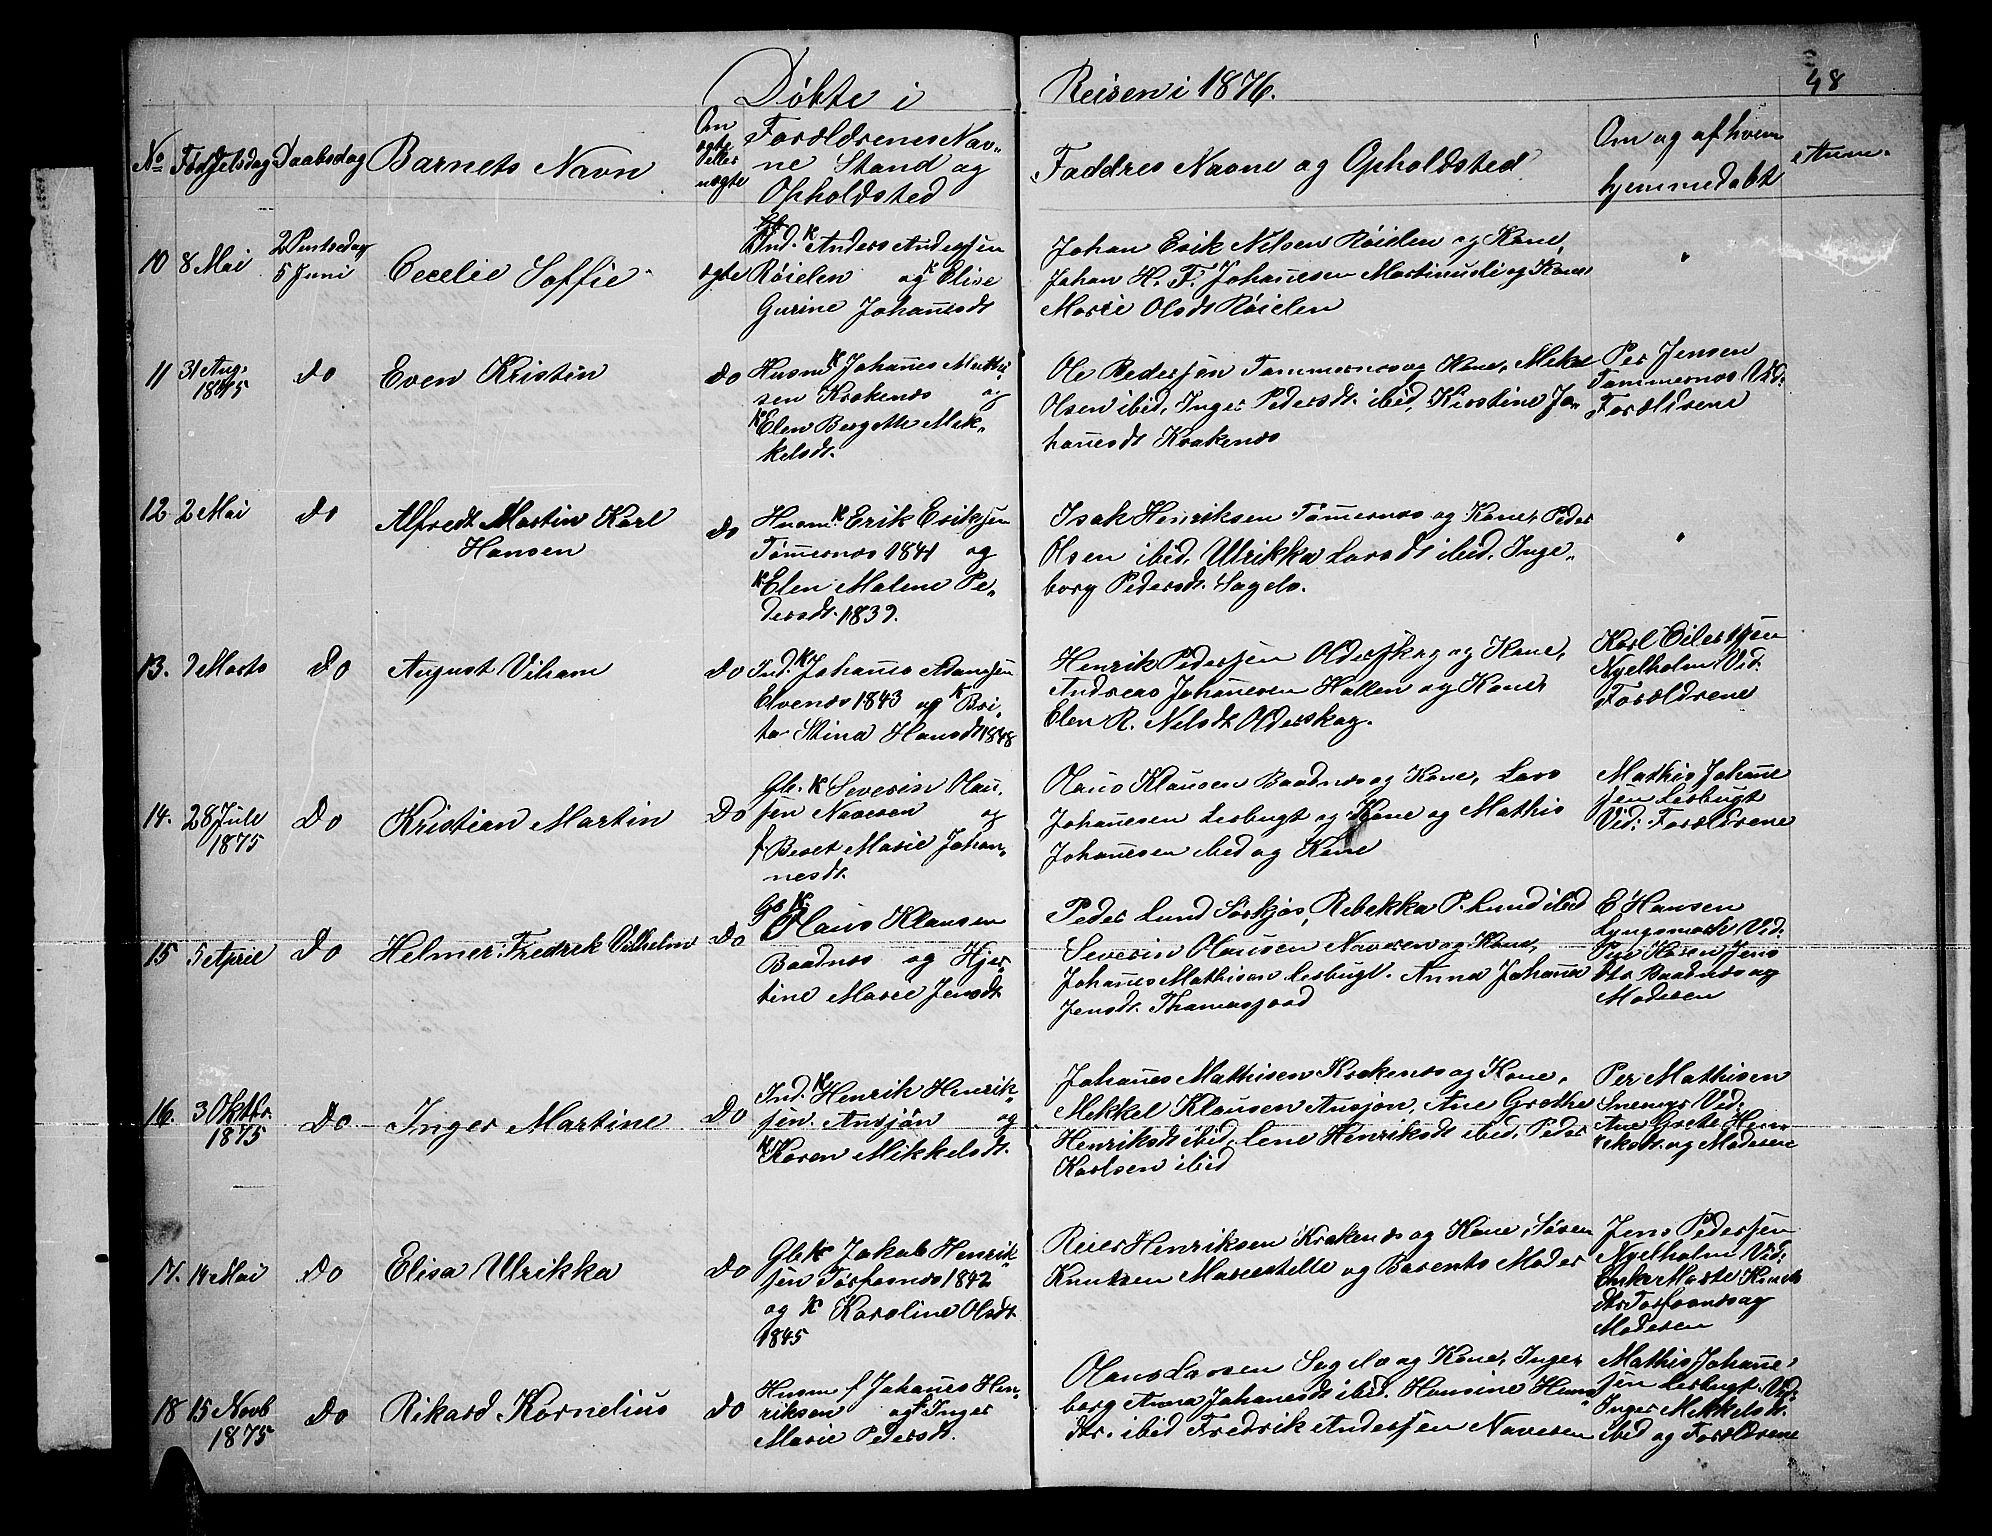 Døbte i Reisen i 1876. 48
No Fødselsdag Daabsdag Barnets Navn
Om ægte eller uægte
Forældrenes Navne Stand og Opholdsted
Faddres Navne og Opholdsted
Om og af hvem hjemmedøbt
Anm.
10 8 Mai
2 Pintsedag
5 Juni
Cecelie Soffie
ægte
Ind. K Anders Andersen
Røielen og K Elise
Gurine Johanesdt
Johan Erik Nilsen Røielen og Kone,
Johan H. F. Johanesen og Kone
Marie Olsdt Røielen
"
11 31 Aug.
1875
Do
Even Kristin
Do
Husmd K Johanes Mathi„
sen Krakenæs og
K Elen Bergitte Mek„
kelsdt.
Ole Pedersen Tømmernes og Kone, Mikel
Olsen ibid, Inger Pedersdt. ibid, Kirstine Jo„
hanesdt Krakenæs
Per Jensen
Tømmernæs Vid:
Forældrene
12 2 Mai
Do
Alfredt Martin Karl
Hansen
Do
Husm. K Erik Eriksen
Tømernæs 1841 og
K Elen Malene Pe„
dersdt. 1839.
Isak Henriksen Tømernæs og Kone, Peder
Olsen ibid. Ulrikka Larsdt ibid. Inge„
borg Pedersdt. Sagelv.
"
13. 9 Marts
Do
August Viham
Do
Ind. K Johanes Adamsen
Elvenæs 1843 og K Bri„
ta Stina Hansdt 1848
Henrik Pedersen Olderskog og Kone,
Andreas Johanesen Hallen og Kone,
Elen R. Nilsdt Olderskog.
Karl Eilertsen
Nyelholm Vid:
Forældrene
14. 28 Jule
1875
Do
Kristian Martin
Do
Gb. K Severin Han„
sen Naveren og
f Beret Marie Johan„
nesdt.
Hans Klausen Baadnæs og Kone, Lars
Johanesen Leebugt og Kone og Mathis
Johanesen ibid og Kone
Mathis Johane
sen Leebugt
Vid: Forældrene
15 5 April
Do
Helmer Fredrik Vilhelm
Do
Gb K
Hans Klausen
Baadnæs og Hjer„
tine Marie Jensdt.
Peder Lund Sørkjos, Rebekka P. Lund ibid
Severin Hansen Naveren og Kone,
Johanes Mathisen Leebugt. Anna Johana
Jensdt. Thomasjord
E Hansen
Lyngsmark Vid:
Pige Karen Jens
dtr Baadnæs og
Moderen
16. 3 Oktbr.
1875
Do
Inger Martine
Do
Ind. K Henrik Henrik„
sen Ansjøn og
K Karen Mikkelsdt.
Johanes Mathisen Krakenæs og Kone,
Mekkel Klausen Ansjøn, Ane Grethe
Henriksdt ibid, Lene Henriksdt ibid, Peder
Karlsen ibid
Per Mathisen
Vid:
Ane Grete Hen
riksdt. og Moderen
17. 14 Mai
Do
Elisa Ulrikka
Do
Gb K Jakob Henrik„
sen Torfosnæs 1842
og K Karoline Olsdt.
1845
Reier Henriksen Krakenæs og Kone, Søren
Knutsen og Barnets Moder
Jens Pedersen
Nyelholm Vid:
Enke Marte
dtr Torfosnæs og
Moderen
18 15 Novb
1875
Do
Rikard Kornelius
Do
Husm f Johanes Hen„
riksen og f Inger
Marie Pedersdt.
Hans Larsen Sagelv og Kone, Inge„
borg Anna Johanesdt ibid. Hansine Hans
dtr. ibid Fredrik Andersen Naveren
Mathis Johane„
sen Leebugt Vid:
Inger Mekkelsdt.
ibid og Forældrene